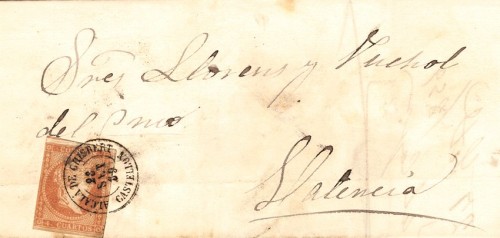 Sres Llorens y Vuchol
del Comº
Valencia
ALCALA DE CHISBERT
CASTELLON
22
CUARTOS